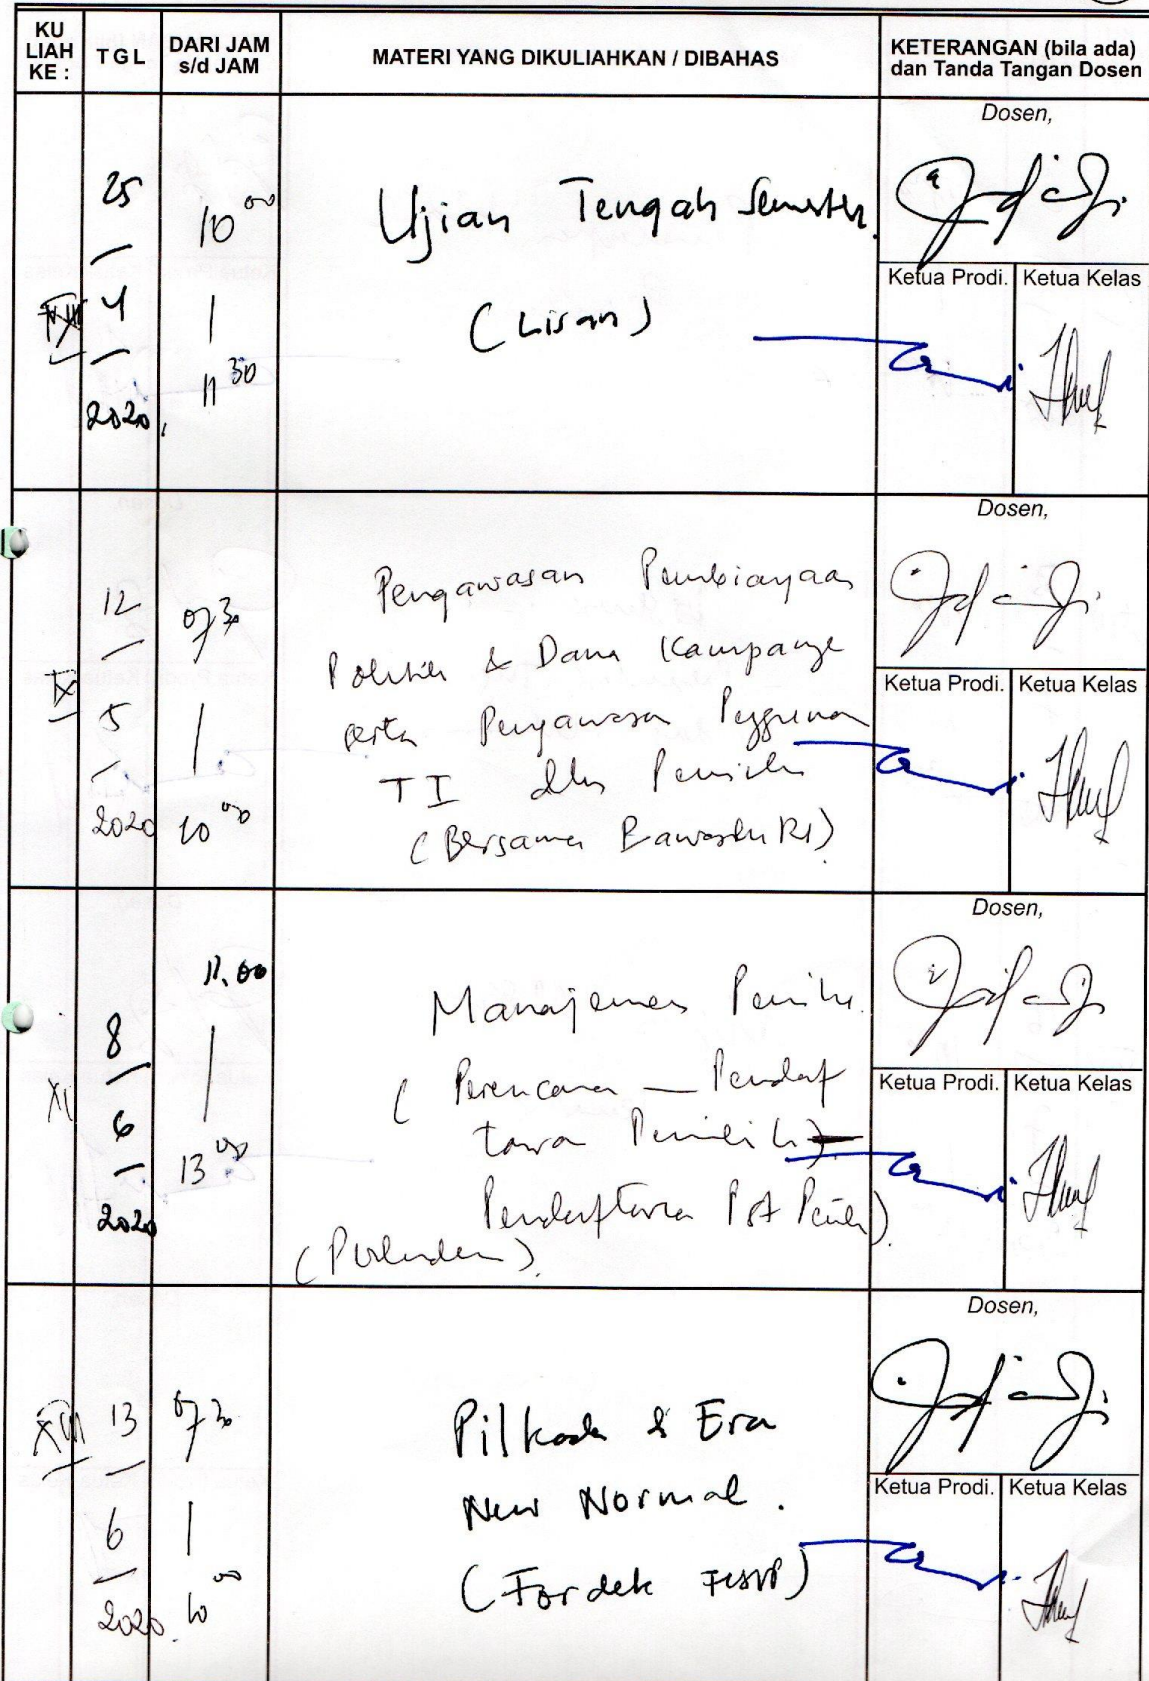 KU LIAH KE :
TGL
DARI JAM s/d JAM
MATERI YANG DIKULIAHKAN / DIBAHAS
KETERANGAN (bila ada) dan Tanda Tangan Dosen
25
—
4
—
2020
10 00
|
11 30
Ujian Tengah Semester.
(Lisan)
Dosen,
Ketua Prodi.
Ketua Kelas
IX
12
—
5
—
2020
07 30
|
10 00
Pengawasan Pembiayaan
Politik & Dana Kampanye
serta Pengawasan
TI dlm Pemilu
(Bersama Bawaslu RI)
Dosen,
Ketua Prodi.
Ketua Kelas
XI
8
—
6
—
2020
11.00
|
13 00
Manajemen Pemilu.
( Perencana — Pendaf
taran Pemilih) —
Pendaftaran Pemilu)
(Perludem).
Dosen,
Ketua Prodi.
Ketua Kelas
XIII
13
—
6
—
2020.
07 30
|
10 00
Pilkada & Era
New Normal.
(Fordek FISIP)
Dosen,
Ketua Prodi.
Ketua Kelas